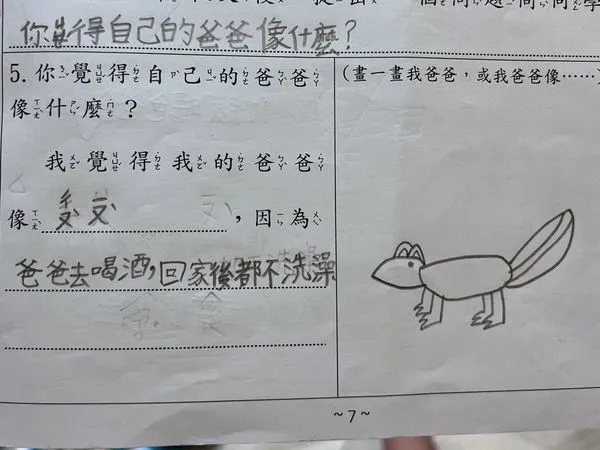 個問題問同學
你覺得自己的爸爸像什麼?
5. 你覺得自己的爸爸
像什麼?
我覺得我的爸爸
像，因為
爸爸去喝酒,回家後都不洗澡
(畫一畫我爸爸，或我爸爸像……)
~7~